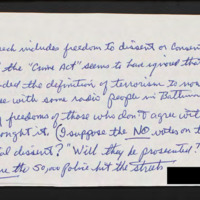 ech includes freedom to dissent or consent
the "Crime Act" seems to had ignored this
ded the definition of terrorism to
e with some radio people in Baltimor
freedoms of those who don't agree wit
ought it. (I suppose the NO votes on th
al dissent?" Will they be prosecuted?
re the police hit the streets